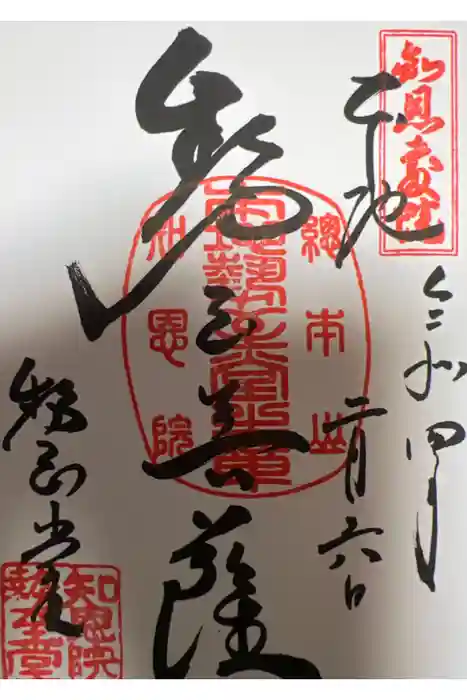 知恩教院
令和四年
本地
二月六日
總本山
知恩院
勢至菩薩
勢至堂
知恩院
勢至堂